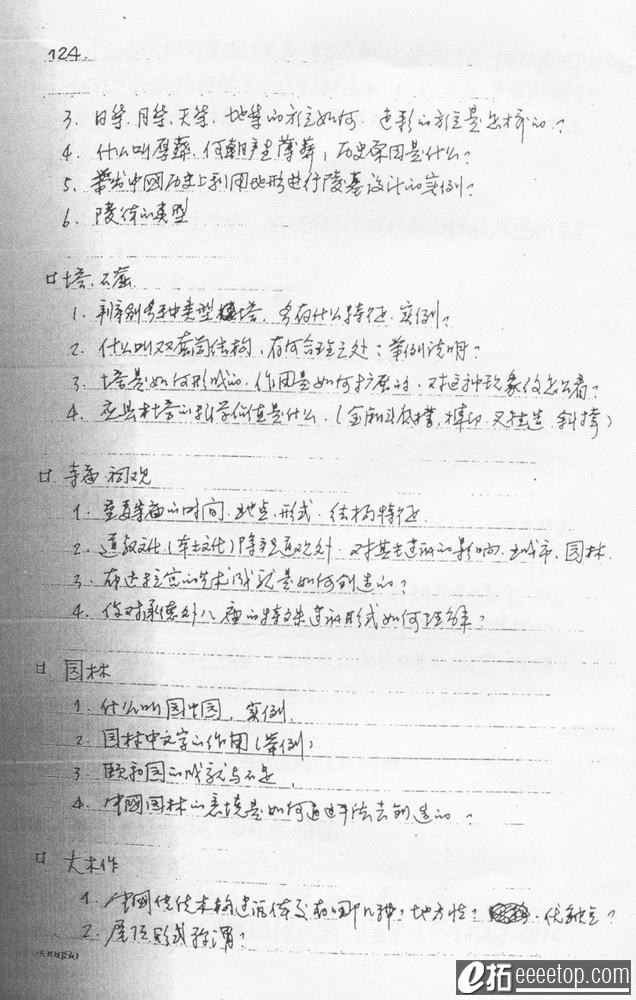 124.
3. 日祭、月祭、天祭、地祭的方位如何、色彩的方位是怎样的？
4. 什么叫厚葬、何朝产生薄葬，历史原因是什么？
5. 举出中國历史上利用地形进行陵墓设计的实例？
6. 陵体的类型
塔、石窟
1. 辨别各种类型塔、各有什么特征、实例？
2. 什么叫双套筒结构、有何合理之处？举例说明？
3. 塔是如何形成的、作用是如何扩展的、对这种现象你怎么看？
4. 应县木塔的科学价值是什么、(
寺庙 祠观
1. 重要寺庙的时间、地点、形式、结构特征
2. 道教文化(本土文化)除宫观外、对其它建筑的影响、城市、园林
3. 布达拉宫的艺术成就是如何创造的？
4. 你对承德外八庙的特殊建筑形式如何理解？
园林
1. 什么叫园中园、实例、
2. 园林中文字的作用(举例)
3. 颐和园的成就与不足、
4. 中國园林的意境是如何通过手法去创造的？
大木作
1. 中國传统木构建筑体系有哪几种？地方性？优缺点？
2. 屋顶形式称谓？
e拓 eeeetop.com